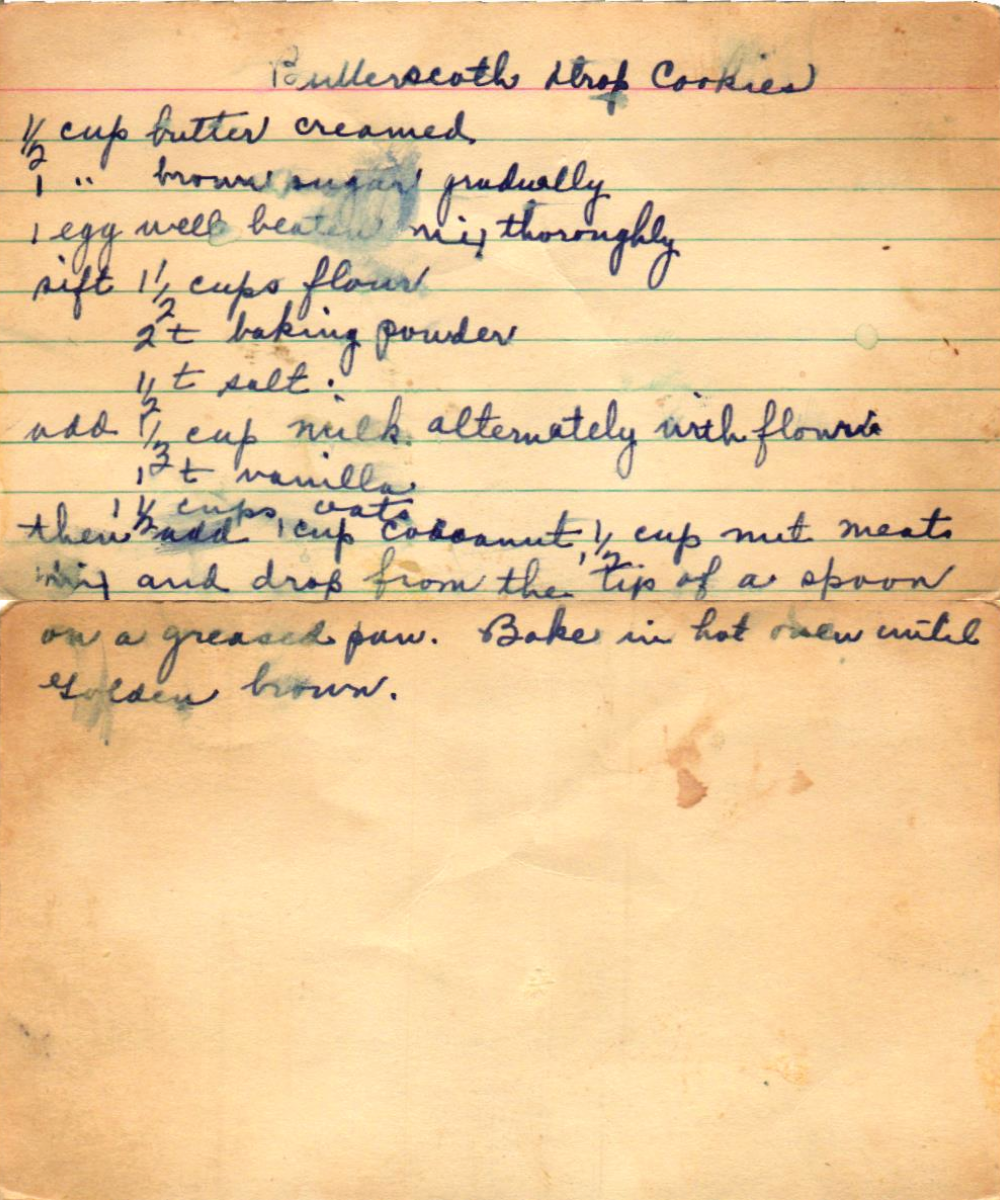 Butterscoth Drop Cookies
1/2 cup butter creamed
1 " brown sugar gradually
1 egg well beaten mix thoroughly
sift 1 1/2 cups flour
2 t baking powder
1/2 t salt.
add 1/3 cup milk. alternately with flour
1 t vanilla
1 1/2 cups oats
then add 1 cup cocoanut, 1/2 cup nut meats
mix and drop from the tip of a spoon
on a greased pan. Bake in hot oven until
golden brown.